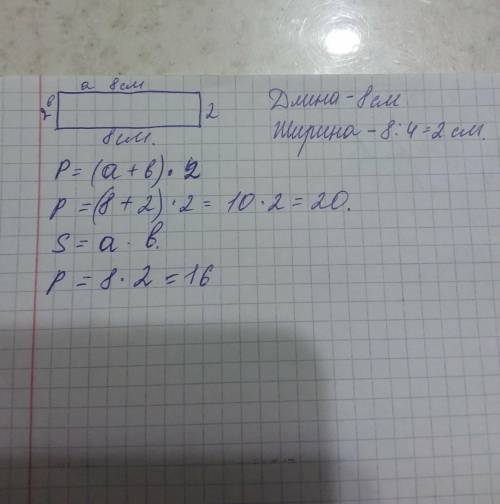 a 8см
в
2
2
8см.
Длина - 8см
Ширина - 8:4=2см.
P = (a + в) · 2
P = (8 + 2) · 2 = 10 · 2 = 20.
S = a · в.
P = 8 · 2 = 16